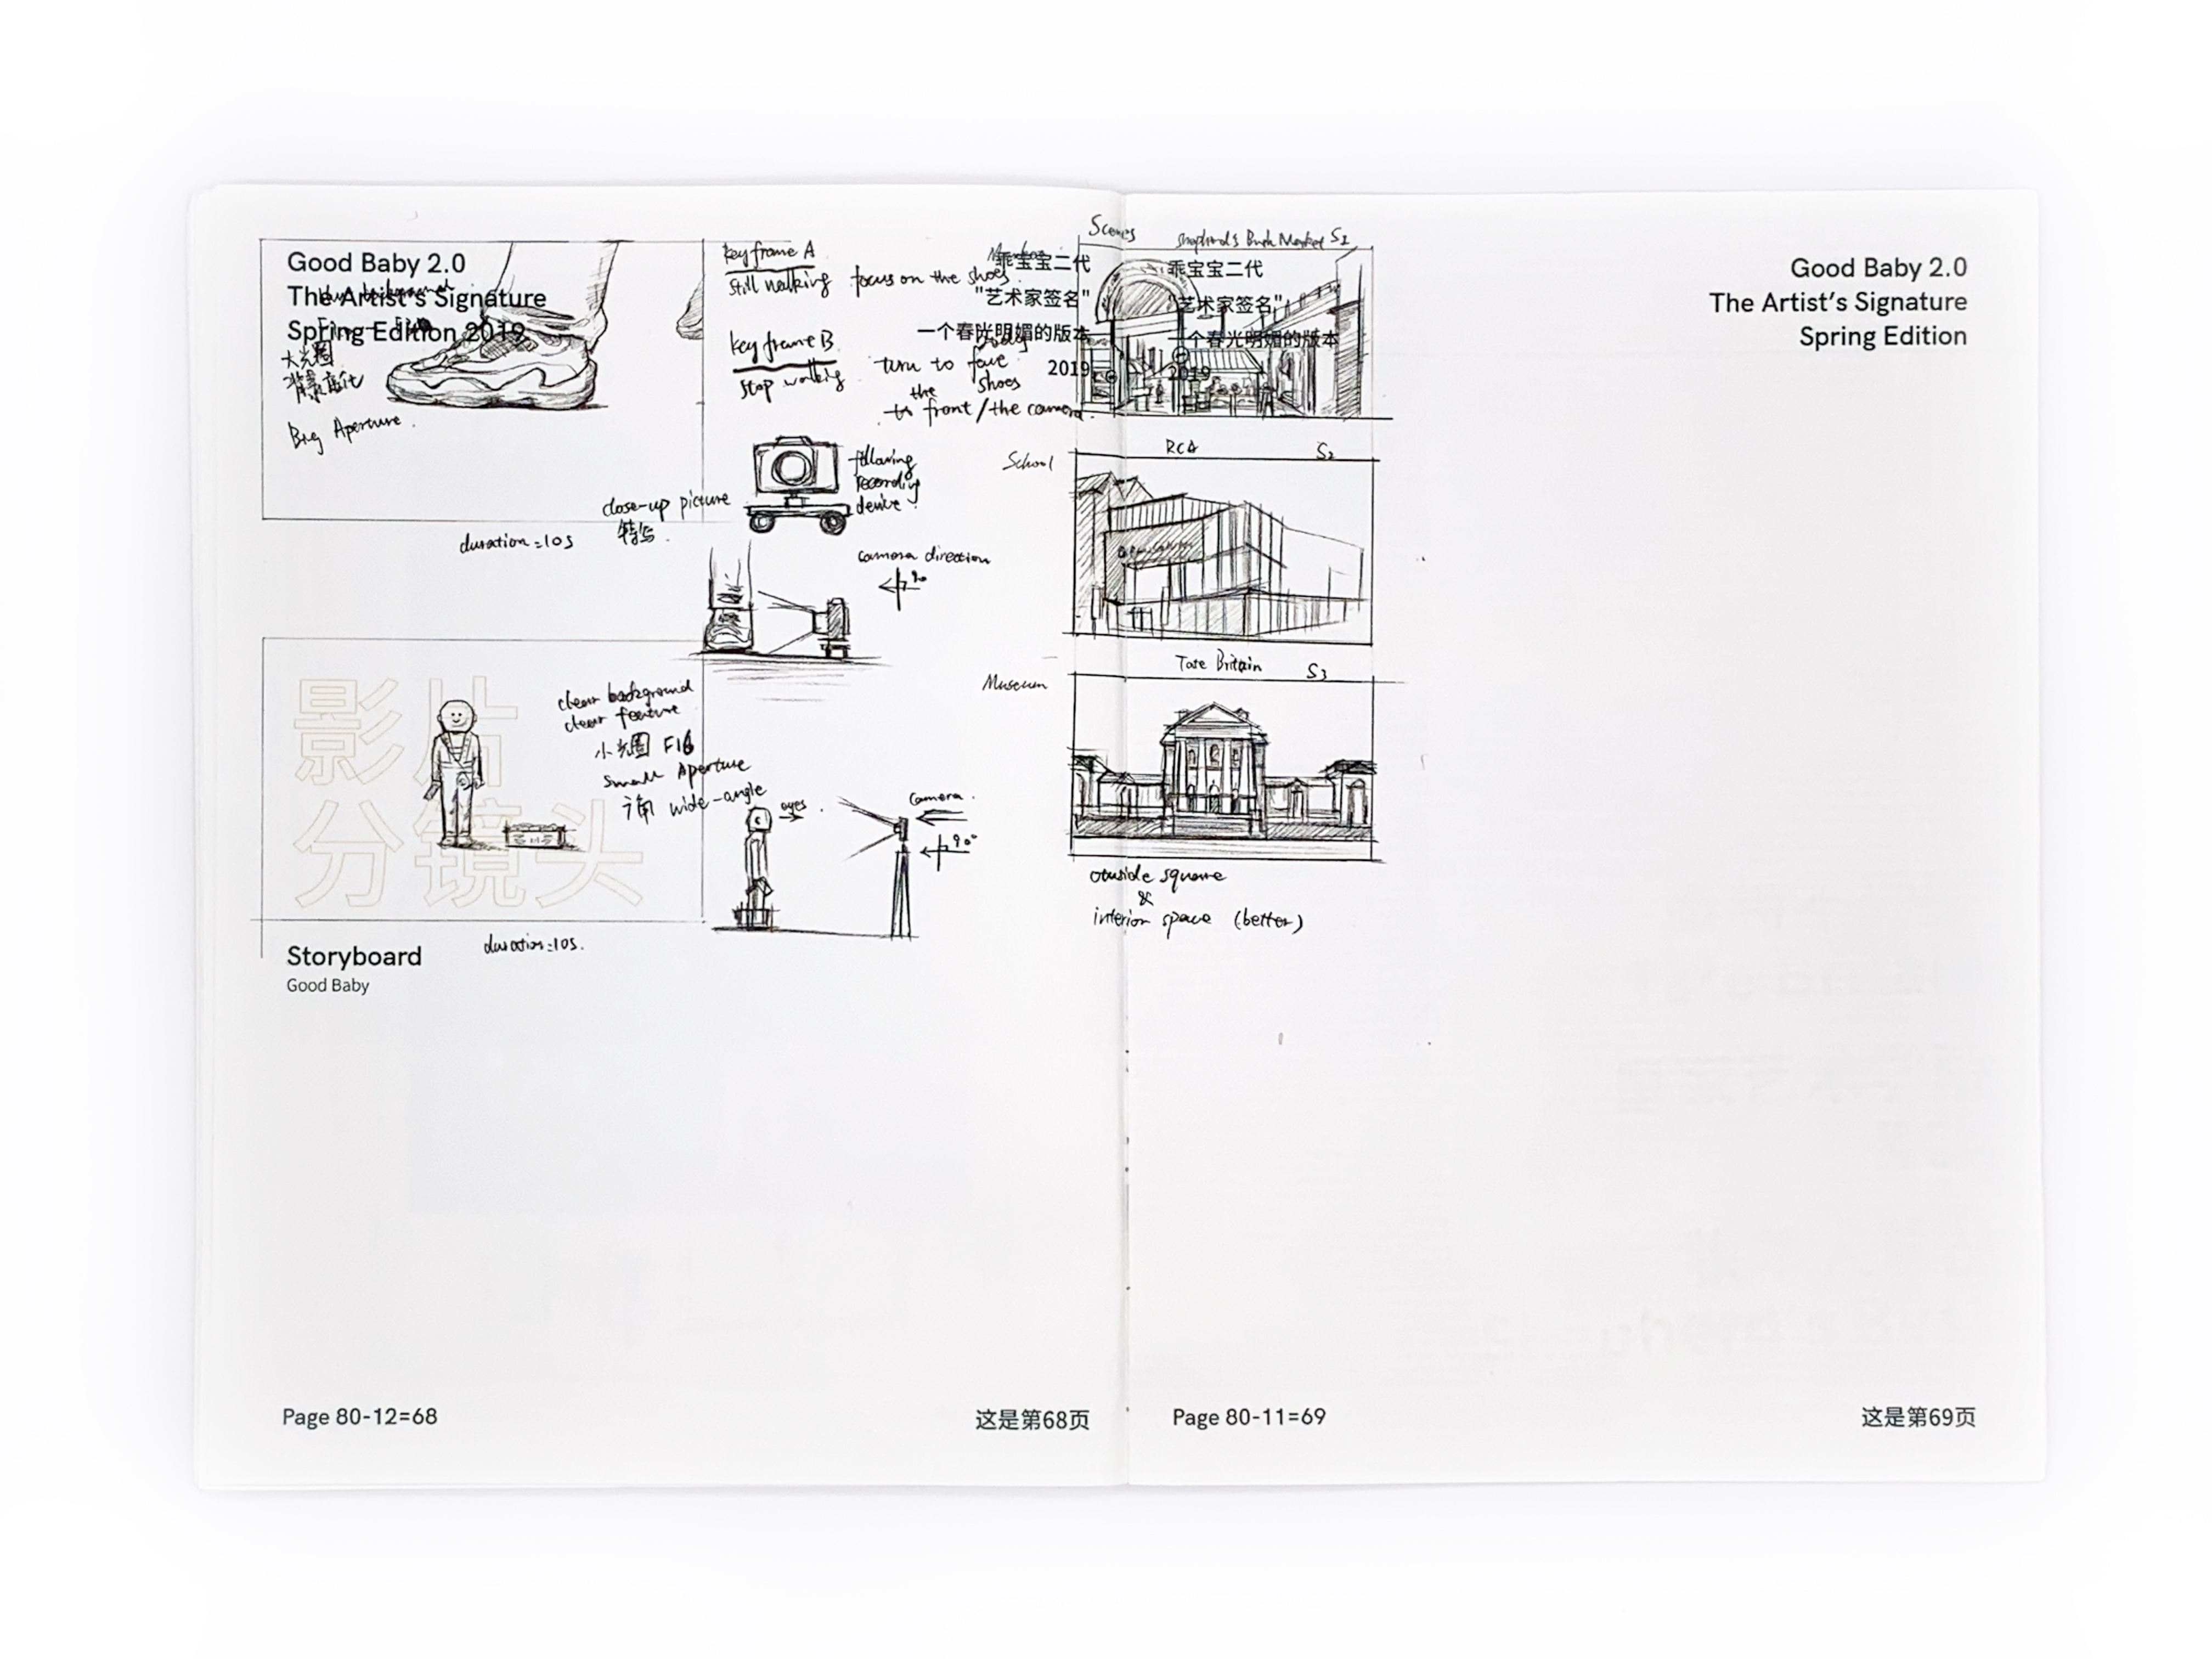 Good Baby 2.0
The Artist's Signature
Spring Edition 2019
大光圈
背景虚化
Big Aperture.
duration=10s
close-up picture
特写.
Key frame A
still walking
focus on the shoes
Key frame B
stop walking
turn to face
the shoes
to front/the camera.
乖宝宝二代
"艺术家签名"
一个春光明媚的版本
2019
following
recording
device.
camera direction
90
影片
分镜头
clear background
clear feature
小光圈 F16
small Aperture
广角 wide-angle
eyes
camera.
90°
duration=10s.
Storyboard
Good Baby
Page 80-12=68
这是第68页
Scenes
Shepherd's Bush Market S1
乖宝宝二代
"艺术家签名"
一个春光明媚的版本
2019
School
RCA
S2
Museum
Tate Britain
S3
outside square
&
interior space (better)
Good Baby 2.0
The Artist's Signature
Spring Edition
Page 80-11=69
这是第69页